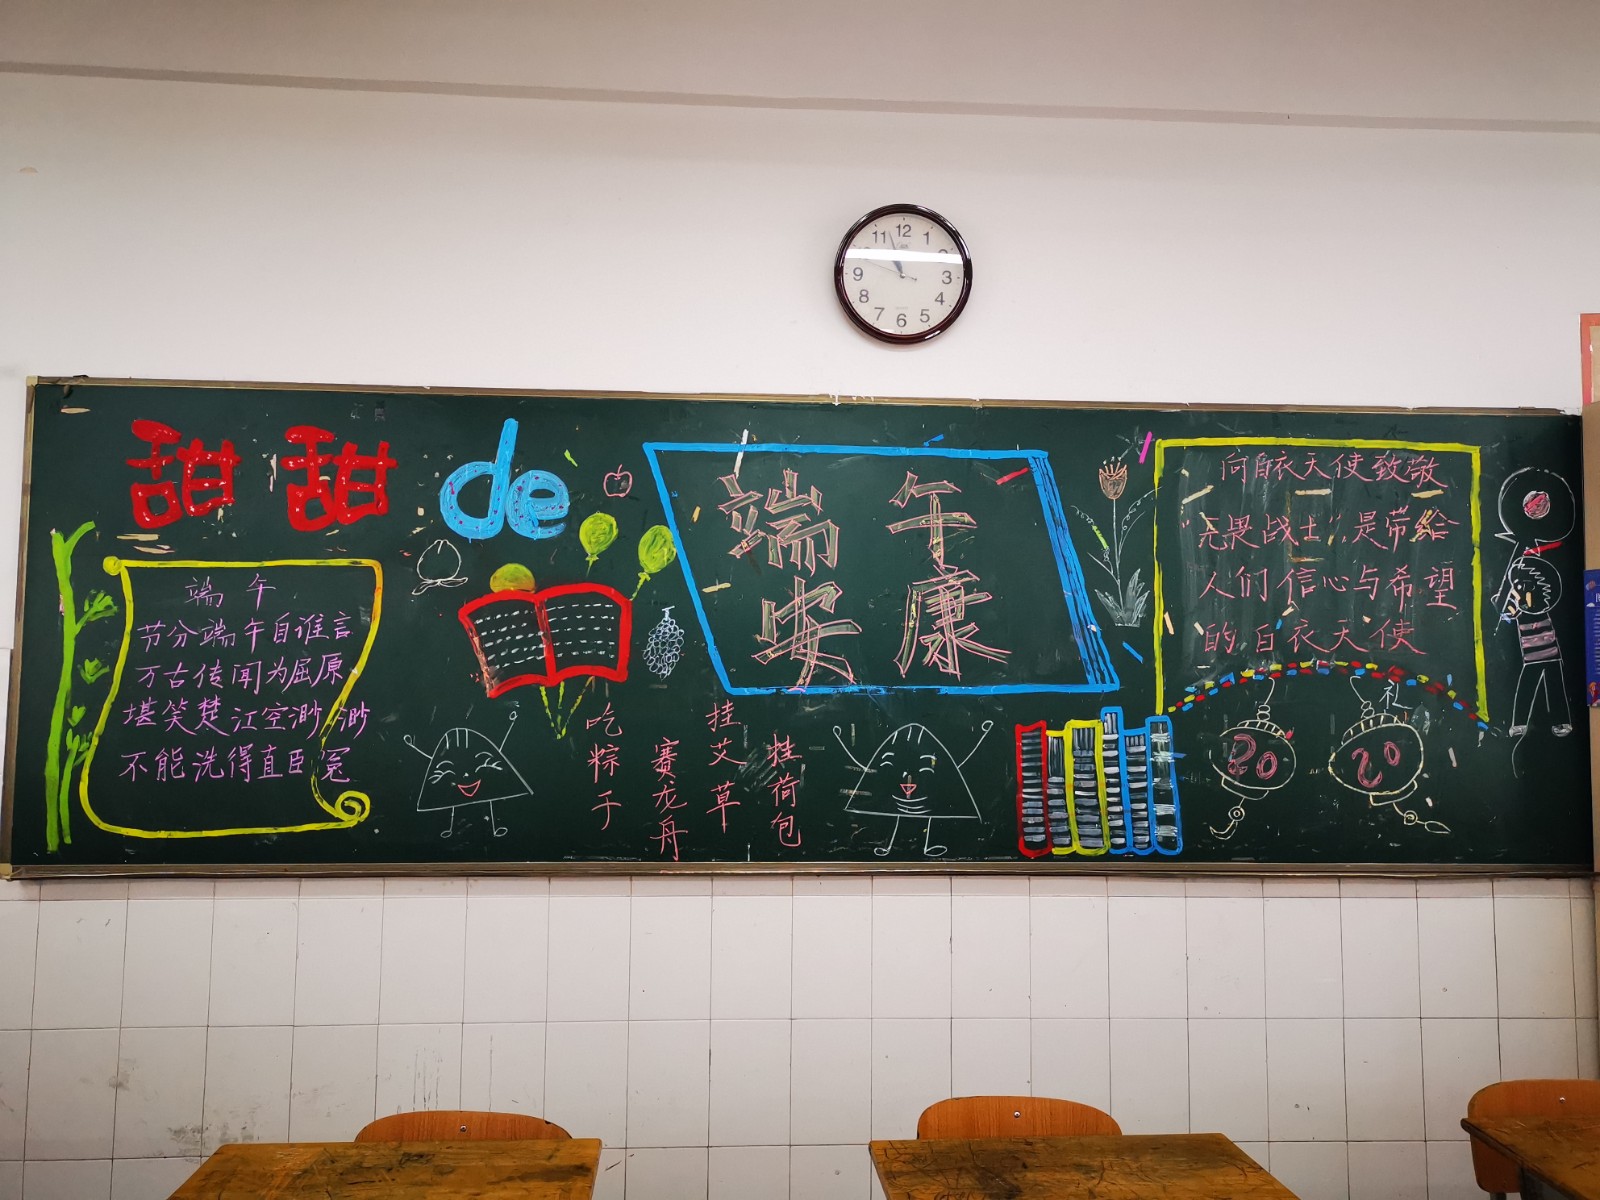 甜甜de
端午
节分端午自谁言
万古传闻为屈原
堪笑楚江空渺渺
不能洗得直臣冤
吃粽子
赛龙舟
挂艾草
挂荷包
端午
安康
向白衣天使致敬
"无畏战士"是带给
人们信心与希望
的白衣天使
20
20
12
1
3
4
5
6
7
8
9
11